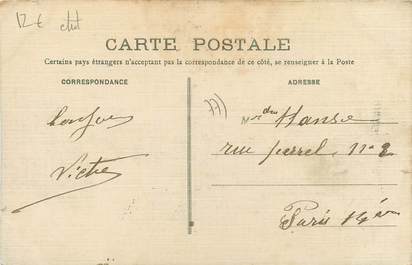 12 €
CARTE POSTALE
Certains pays étrangers n'acceptant pas la correspondance de ce côté, se renseigner à la Poste
CORRESPONDANCE
ADRESSE
77)
Hanse
rue Perrel, nº 2
Paris 14è